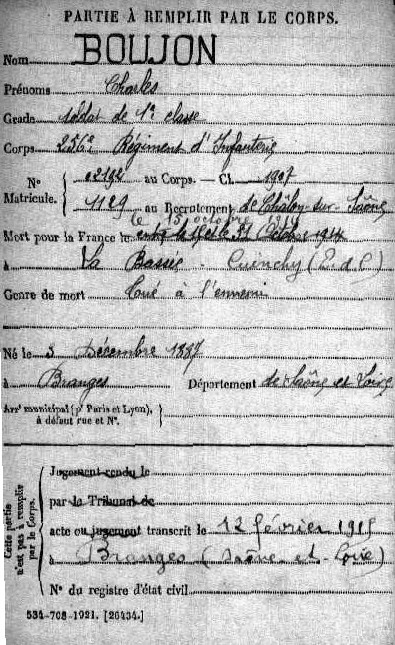 PARTIE À REMPLIR PAR LE CORPS.
Nom BOUJON
Prénoms Charles
Grade soldat de 1e classe
Corps 256e Régiment d'Infanterie
No Matricule. 02192 au Corps. — Cl. 1907
1129 au Recrutement de Châlon-sur-Saône
le 15 octobre 1914
Mort pour la France le entre le et le 31 Octobre 1914
à La Bassée - Cuinchy (P. d. C)
Genre de mort Tué à l'ennemi
Né le 3 Décembre 1887
à Branges Département de Saône et Loire
Arrt municipal (pr Paris et Lyon),
à défaut rue et No.
Cette partie n'est pas à remplir par le Corps.
Jugement rendu le
par le Tribunal de
acte ou jugement transcrit le 12 février 1915
à Branges (Saône-et-Loire)
No du registre d'état civil
534-708-1921. [26434.]